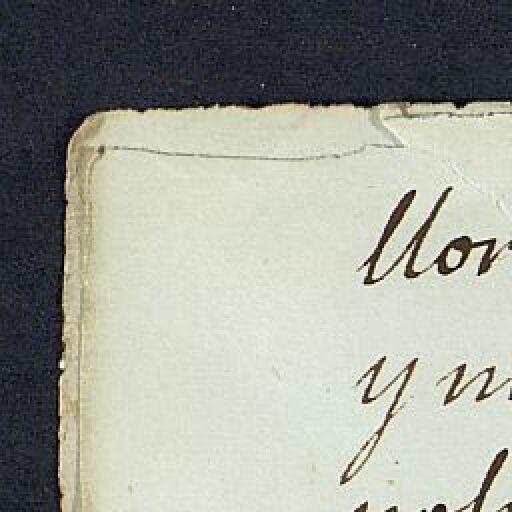 llor
y m